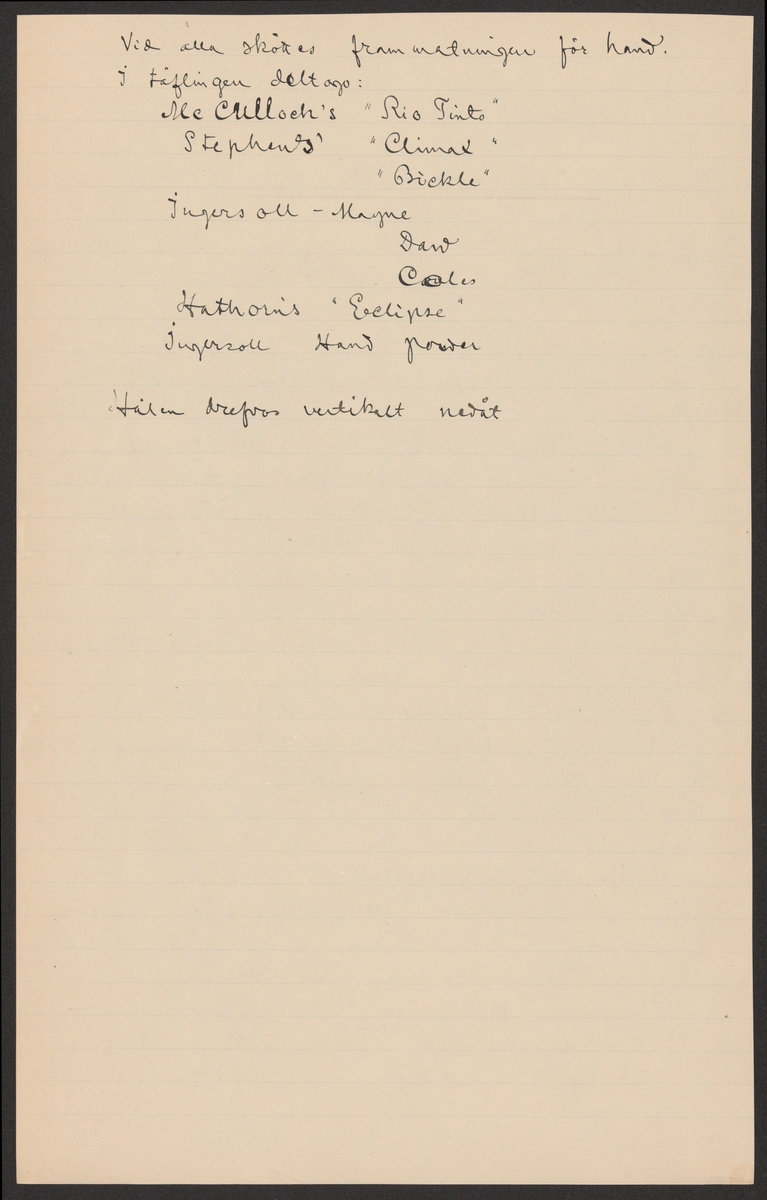 Vid alla sköttes frammatningen för hand.
I täflingen deltogo:
Mc Culloch's "Rio Tinto"
Stephens' "Climax"
"Bickle"
Ingersoll - Mayne
Daw
Coales
Hathorn's "Eclipse"
Ingersoll Hand power
Hålen drefvos vertikalt nedåt